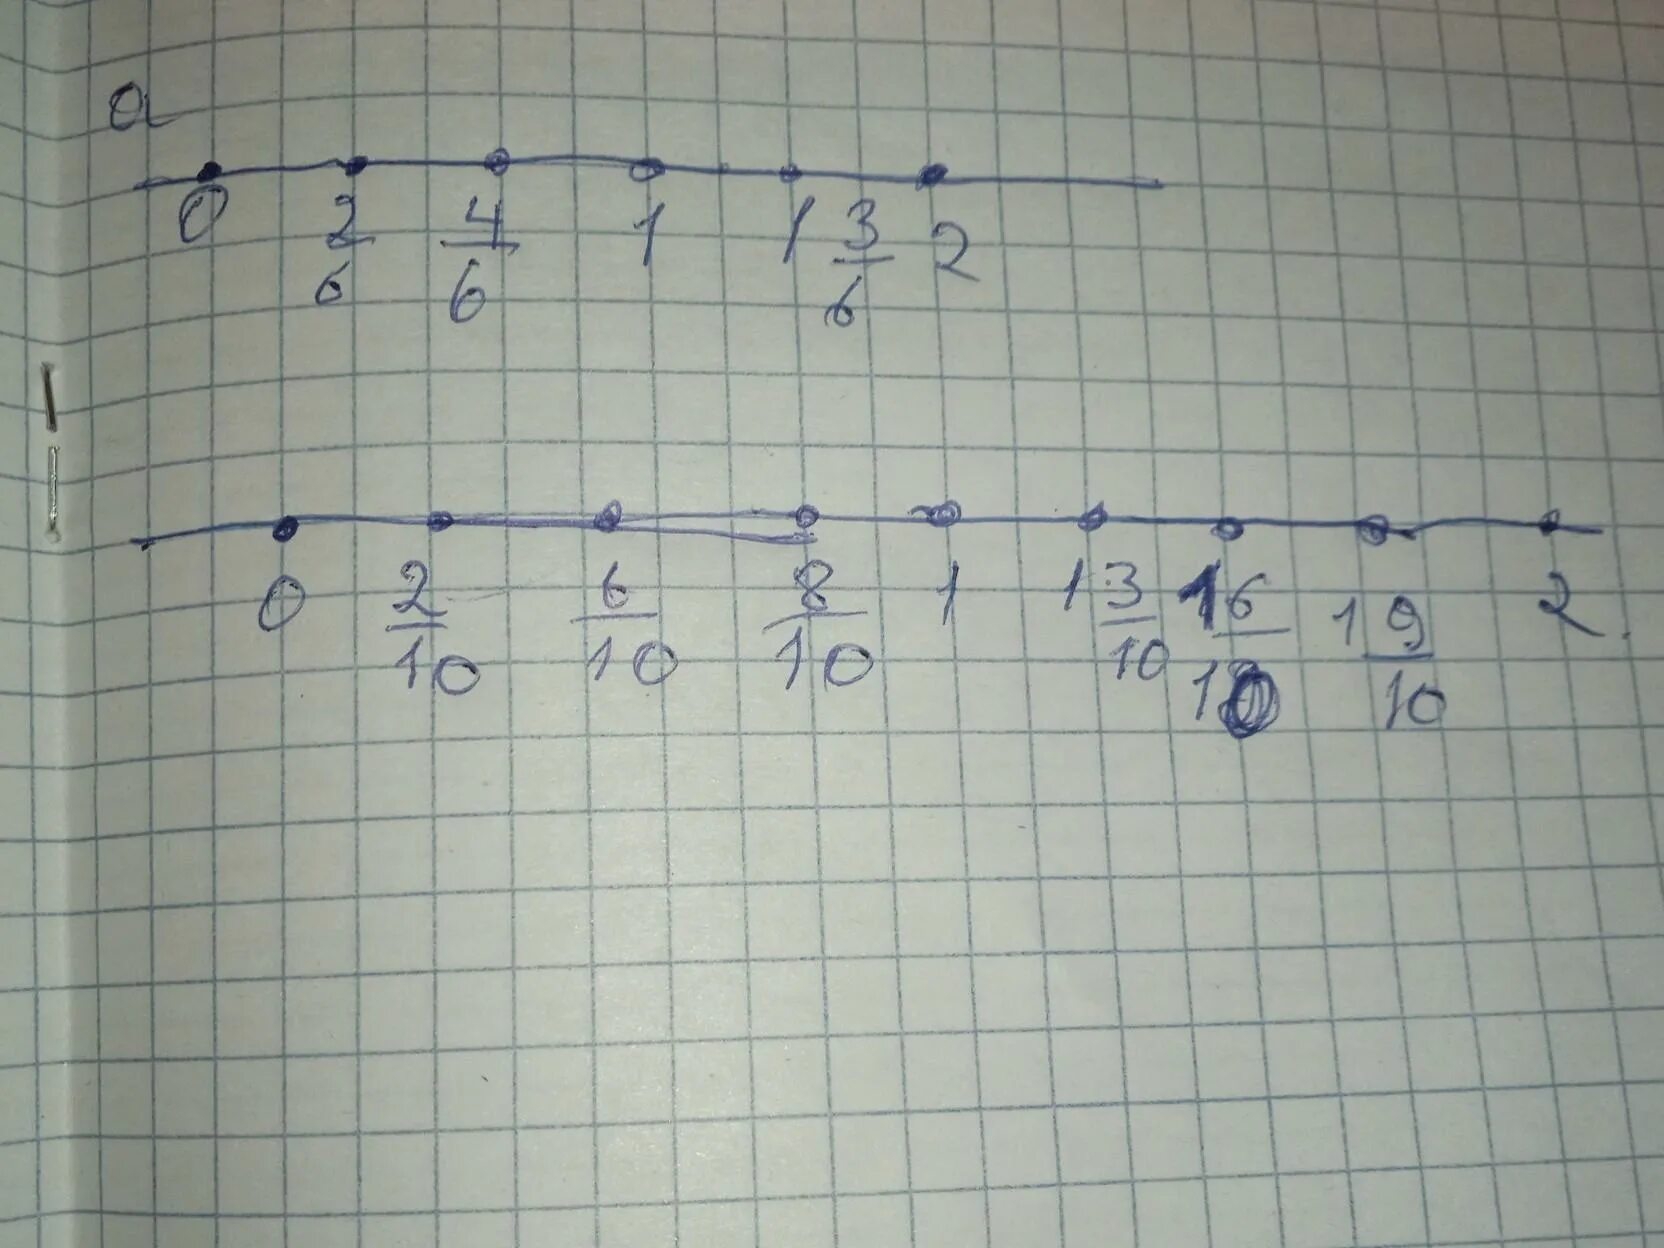 а
0 2/6 4/6 1 1 3/6 2
0 2/10 6/10 8/10 1 1 3/10 1 6/10 1 9/10 2